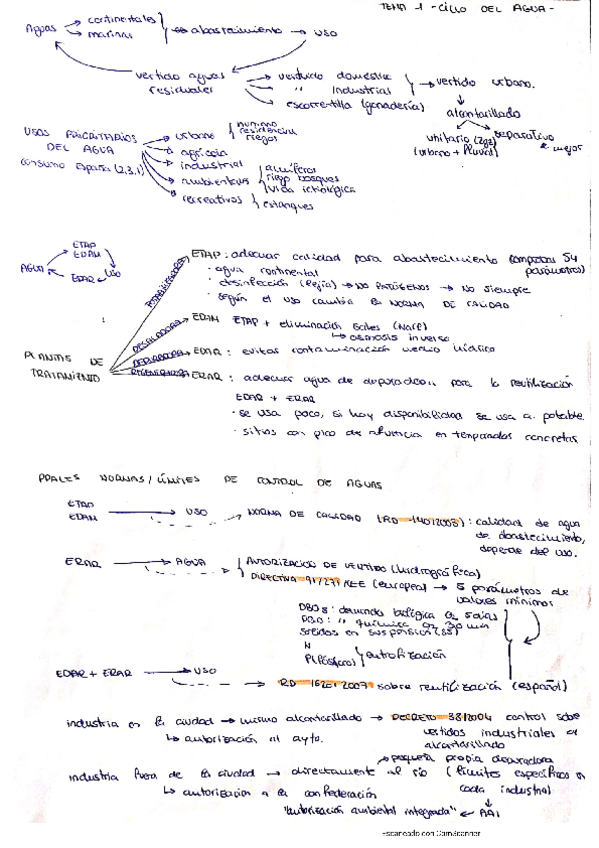 TEMA 1 - CICLO DEL AGUA -
Aguas → continentales
→ marinas
⇒ abastecimiento → USO
vertido aguas residuales
→ vertido doméstico
→ " Industrial
→ escorrentilla (ganadería)
→ vertido urbano.
alcantarillado
unitario (Zgz)
(urbano + Pluvial)
separativo
mejor
USOS PRIORITARIOS
DEL AGUA
consumo España (2,3,1)
→ urbano
humano
residencial
riegos
→ agrícola
→ industrial
→ ambientales
acuíferos
riego bosques
vida ictiológica
→ recreativos
estanques
AGUA
ETAP
EDAM
USO
EDAR
PLANTAS DE
TRATAMIENTO
POTABILIZADORA
ETAP: adecuar calidad para abastecimiento (empresas 54
parámetros)
· agua continental
· desinfección (lejía) → NO PATÓGENOS → No siempre
· según el uso cambia la NORMA DE CALIDAD
DESALADORA
EDAM ETAP + eliminación sales (NaCl)
↳ osmosis inversa
DEPURADORA
EDAR: evitar contaminación medio hídrico
REGENERADORA
ERAR: adecuar agua de depuradora para la reutilización
EDAR + ERAR
· se usa poco, si hay disponibilidad se usa a. potable.
· sitios con pico de afluencia en temporadas concretas
PPALES NORMAS/LÍMITES DE CONTROL DE AGUAS
ETAP
EDAM
→ USO
NORMA DE CALIDAD (RD 140/2003): calidad de agua
de abastecimiento,
depende del uso.
ERAR → AGUA
AUTORIZACIÓN DE VERTIDO (hidrográfica)
DIRECTIVA 91/271 KEE (europea) → 5 parámetros de
valores mínimos
DBO5: demanda biológica O2 5 días
DQO: " química O2 30 min
sólidos en suspensión (SS)
N
P (fósforo)
eutrofización
EDAR + ERAR → USO
RD 1620/2007 sobre reutilización (español)
industria en la ciudad → mismo alcantarillado → DECRETO 38/2004 control sobre
vertidos industriales al
alcantarillado
↳ autorización al ayto.
pequeña propia depuradora
industria fuera de la ciudad → directamente al río (límites específicos en
cada industria)
↳ autorización a la confederación
"autorización ambiental integrada" ← AAI
Escaneado con CamScanner